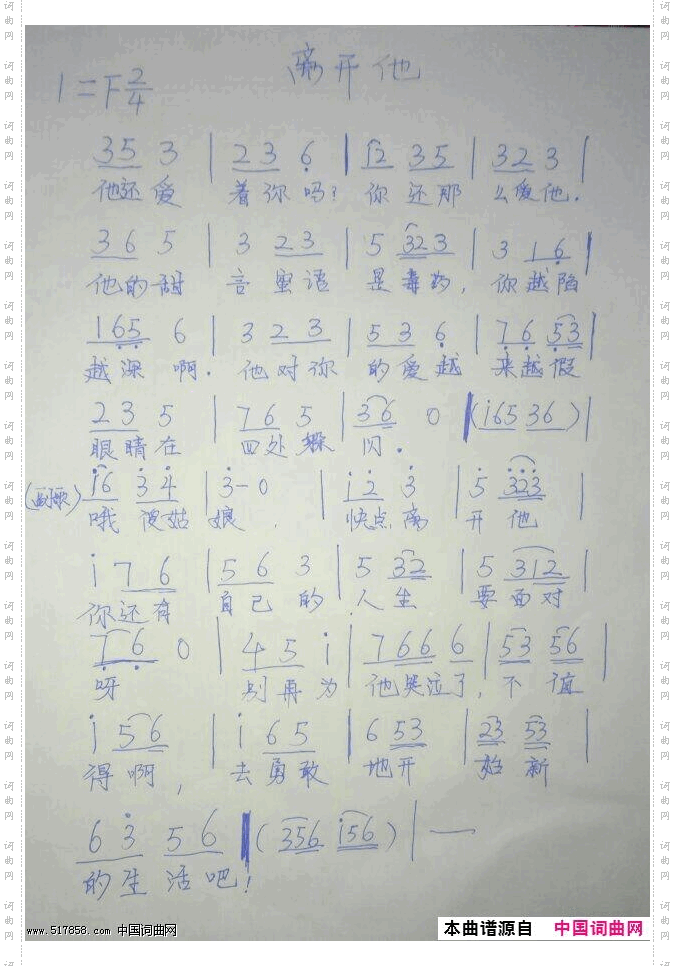 离开他
1=F 2/4
35 3 | 23 6 | 12 35 | 323 |
他还爱 着你吗? 你还那 么爱他.
36 5 | 3 23 | 5 323 | 3 16 |
他的甜 言蜜语 是毒药, 你越陷
165 6 | 3 23 | 53 6 | 76 53 |
越深啊. 他对你 的爱越 来越假
23 5 | 76 5 | 36 0 | (i65 36) |
眼睛在 四处躲 闪.
(副歌) i6 34 | 3-0 | i2 3 | 5 323
哦 傻姑 娘. 快点离 开他
i 76 | 56 3 | 5 32 | 5 312
你还有 自己的 人生 要面对
76 0 | 45 i | 766 6 | 53 56
呀 别再为 他哭泣了, 不值
i 56 | i 65 | 6 53 | 23 53 |
得啊, 去勇敢 地开 始新
63 56 | (356 i56) | —
的生活吧!
www.517858.com 中国词曲网
本曲谱源自 中国词曲网